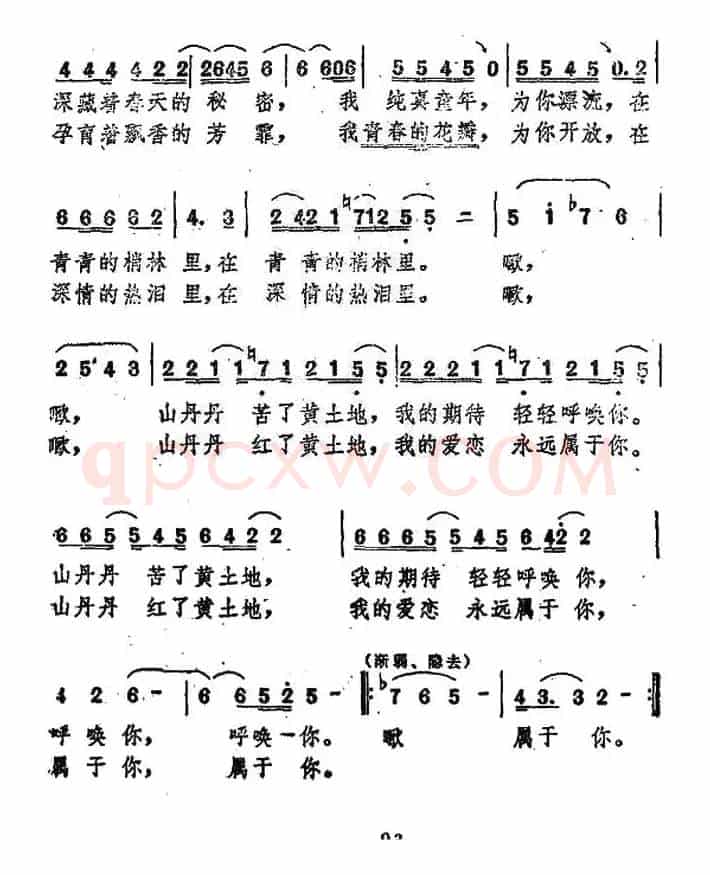 4 4 4 4 2 2 | 2645 6 | 6 606 | 5 5 4 5 0 | 5 5 4 5 0.2
深藏着春天的 秘 密， 我 纯真童年，为你漂流，在
孕育着飘香的 芳 霏， 我青春的花瓣，为你开放，在
6 6 6 6 6 2 | 4. 3 | 2 421 ♮712 5 5 – | 5 i ♭7 6
青青的梢林 里，在 青 青的梢林里。 噉，
深情的热泪 里，在 深 情的热泪里。 噉，
2 5 4 3 | 2 2 1 1 ♮7 1 2 1 5 5 | 2 2 2 1 1 ♮7 1 2 1 5 5
噉， 山丹丹 苦了黄土地，我的期待 轻轻呼唤你。
噉， 山丹丹 红了黄土地，我的爱恋 永远属于你。
qpcxw.COM
6 6 5 5 4 5 6 4 2 2 | 6 6 6 5 5 4 5 6 42 2 |
山丹丹 苦了黄土地， 我的期待 轻轻呼唤 你，
山丹丹 红了黄土地， 我的爱恋 永远属于 你，
（渐弱、隐去）
4 2 6 – | 6 6 5 2 5 – ‖: ♭7 6 5 – | 4 3. 3 2 – :‖
呼 唤 你， 呼唤 你。 噉 属于 你。
属 于 你， 属于 你。